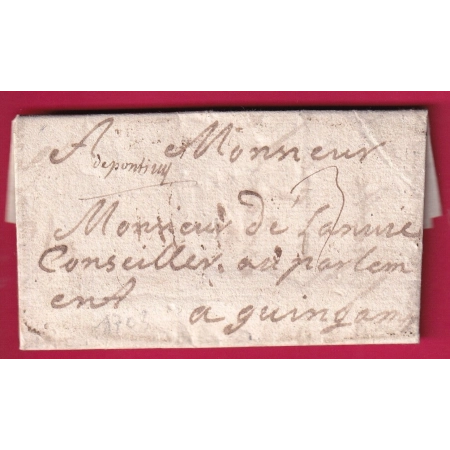 A Monneur
depontivy
3
Monneur de Lanuie
Conseiller au parlem
ent
a guingam
1703